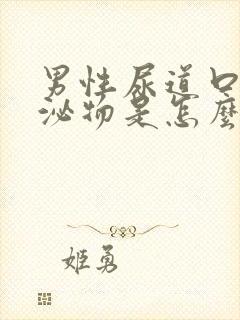 男性尿道口
泌物是怎麼
姬勇